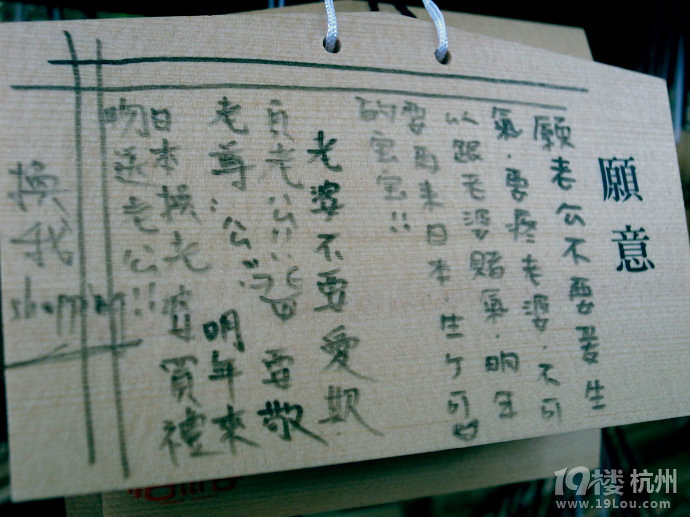 願意
願老公不要愛生
氣.要疼老婆.不可
以跟老婆賭氣.明年
要再來日本.生个可♡
的宝宝!!
老婆不要愛欺
負老公!! 要敬
老尊"公".明年來
日本換老婆買禮
物送老公!!
換我
shopping
19楼 杭州
www.19Lou.com